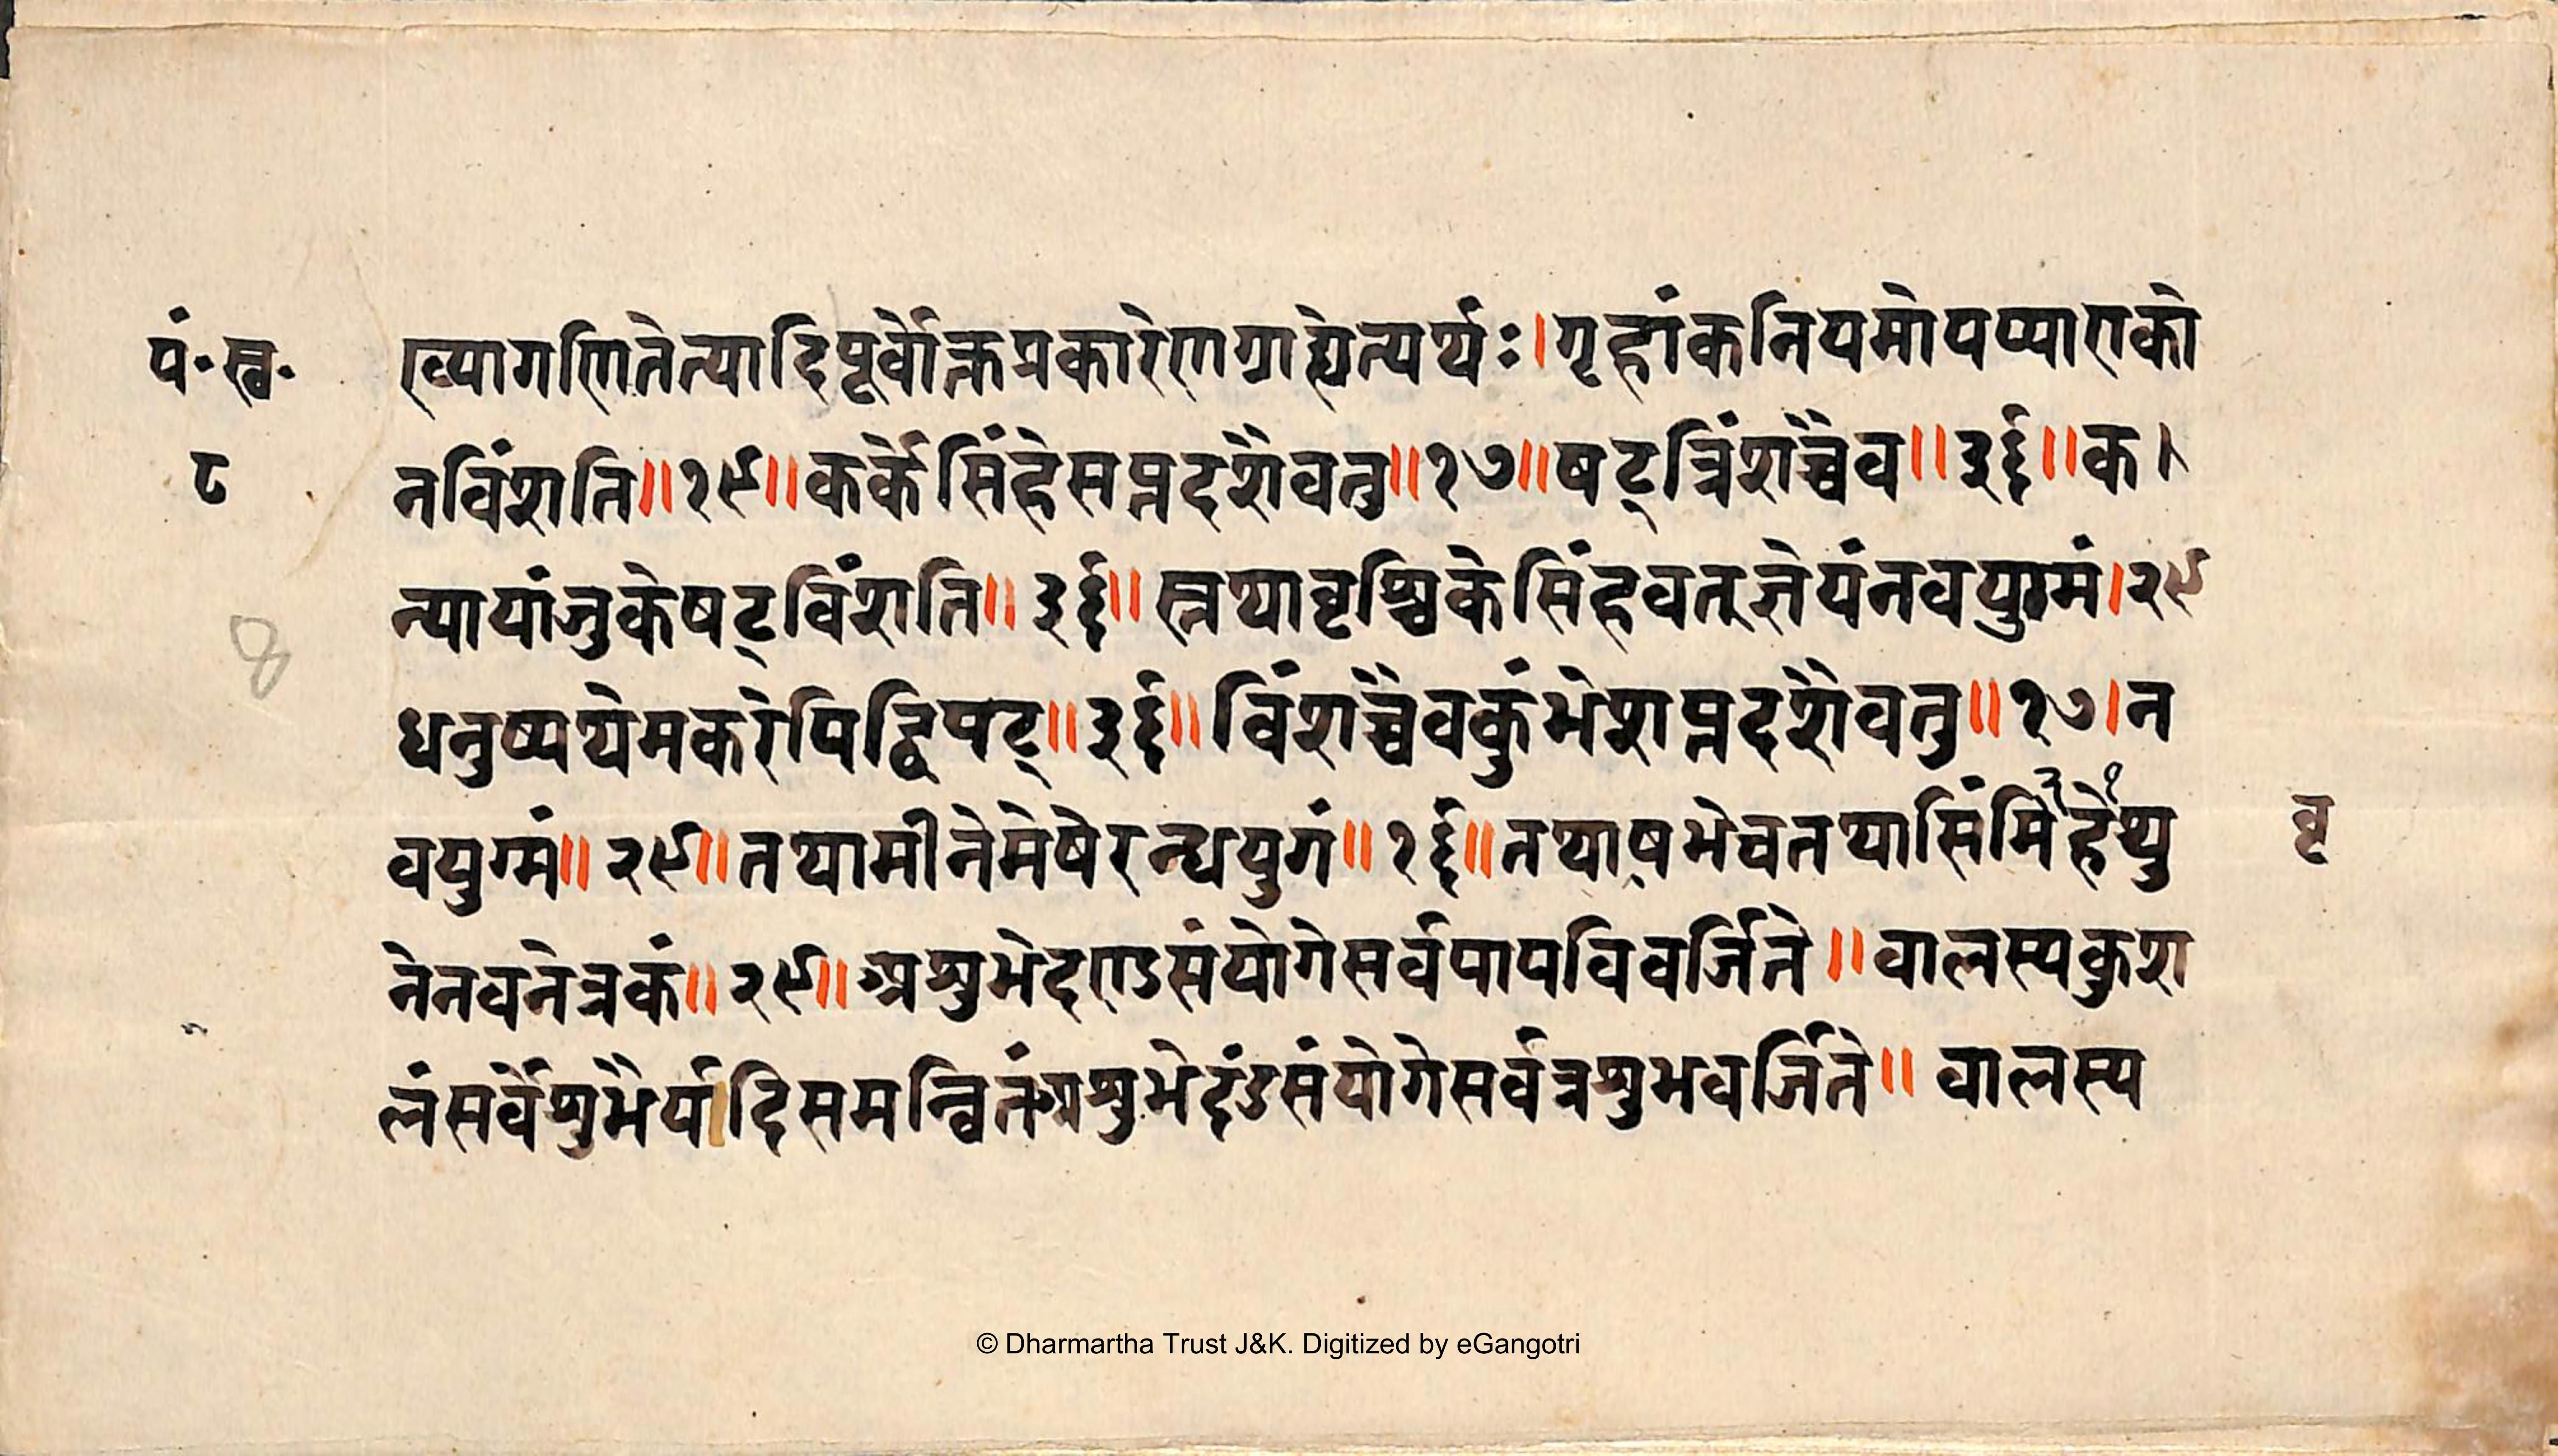 पं॰स्व॰
८
8
ख्यागणितेत्यादिपूर्वोक्तप्रकारेणग्राह्येत्यर्थः।गृहांकनियमोपप्याएको
नविंशति॥१९॥कर्केसिंहेसप्तदशैवतु॥१७॥षट्त्रिंशच्चैव॥३६॥क।
न्यायांजुकेषट्विंशति॥३६॥स्तथावृश्चिकेसिंहवत्ज्ञेयंनवयुग्मं।२९
धनुष्यथेमकरेपिद्विषट्॥३६॥विंशच्चैवकुंभेशप्तदशैवतु॥१७।न
वयुग्मं॥२९॥तथामीनेमेषेरन्ध्रयुगं॥१६॥तथाषभेचतथासिंमि२हे१थु
वृ
नेनवनेत्रकं॥२९॥अशुभेदएडसंयोगेसर्वपापविवर्जिते॥वालस्यकुश
लंसर्वेशुभैर्पादिसमन्वितंअशुभेदंडसंयोगेसर्वत्रशुभवर्जिते॥वालस्य
© Dharmartha Trust J&K. Digitized by eGangotri